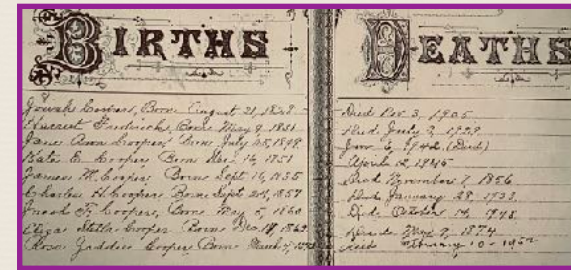 BIRTHS
Cooper, Born August 21, 18
Harriet Fredericks, Born May 9, 1831
Jane Ann Cooper, Born July 25, 1849
Kate E. Cooper, Born Dec. 14, 1851
James M. Cooper, Born Sept 16, 1855
Charles H. Cooper, Born Sept 24, 1857
Cooper, Born May 5, 1860
Eliza Stella Cooper Born Dec. 18, 186
Rose Cooper Born March 7,
DEATHS
Died Nov 3, 1905
Died July 2, 1929
Jan. 6, 1942 (Died)
April 12, 1945
Died November 7, 1856
Died January 28, 1933
Died October 14,
Died May 9, 1874
Died February 10 - 1952